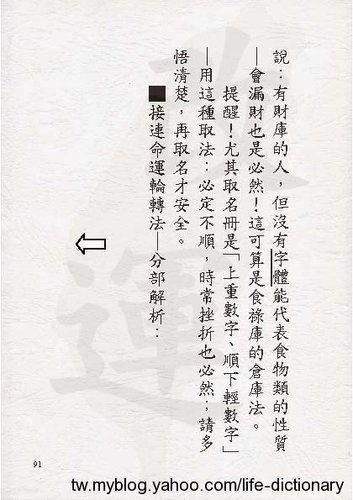 說：有財庫的人，但沒有字體能代表食物類的性質
—會漏財也是必然！這可算是食祿庫的倉庫法。
提醒！尤其取名冊是「上重數字、順下輕數字」
—用這種取法：必定不順，時常挫折也必然；請多
悟清楚，再取名才安全。
■接連命運輪轉法—分部解析：
91
tw.myblog.yahoo.com/life-dictionary